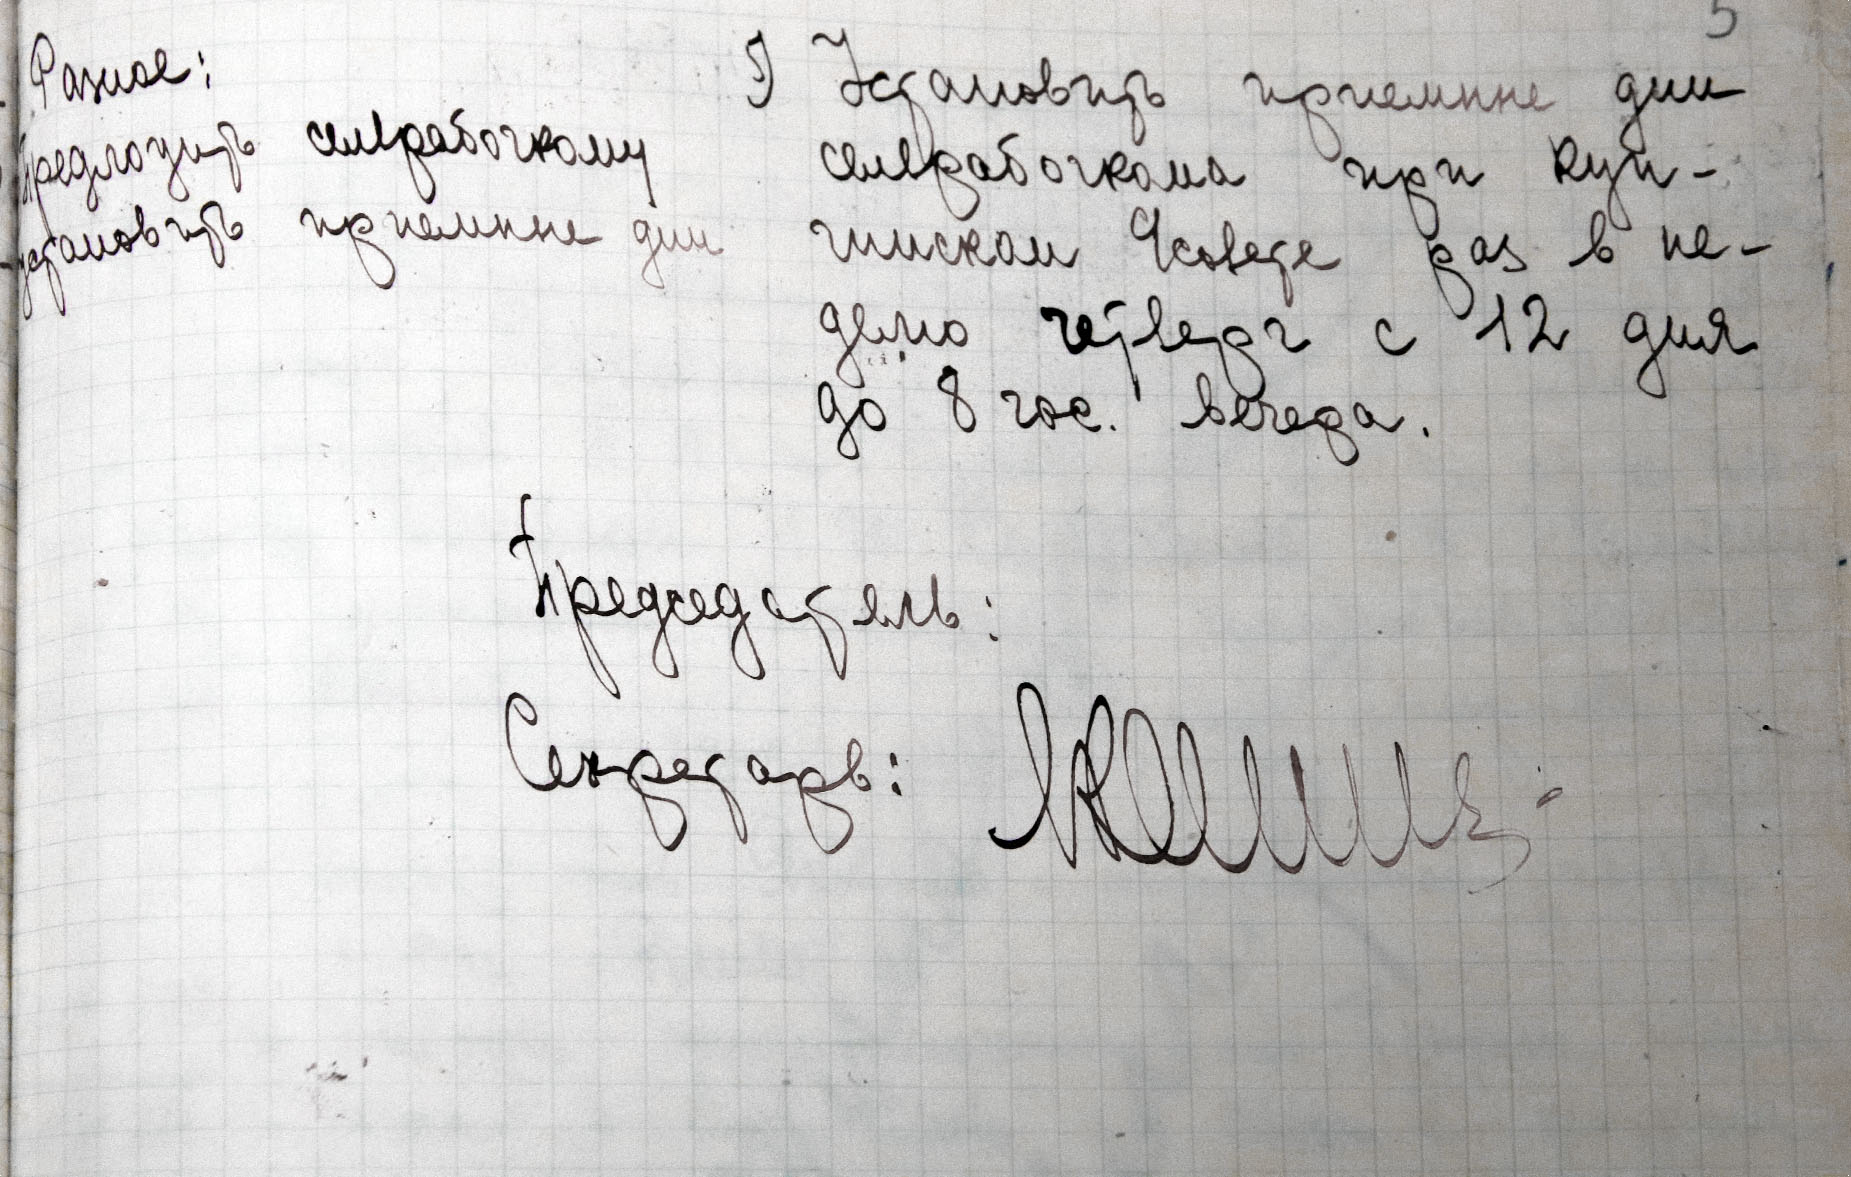 5
Разное:
Предложить сельрабочкому
установить приемные дни
1) Установить приемные дни
сельрабочкома при Куп-
чинском Ч/совете раз в не-
делю четверг с 12 дня
до 8 час. вечера.
Председатель:
Секретарь: